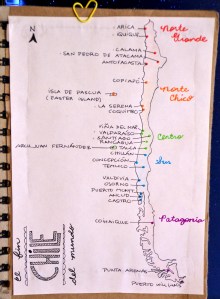 ARICA
IQUIQUE
Norte Grande
CALAMA
SAN PEDRO DE ATACAMA
ANTOFAGASTA
COPIAPÓ
Norte Chico
ISLA DE PASCUA
(EASTER ISLAND)
LA SERENA
COQUIMBO
VIÑA DEL MAR
VALPARAÍSO
SANTIAGO
Centro
RANCAGUA
ARCH. JUAN FERNÁNDEZ
TALCA
CHILLÁN
CONCEPCIÓN
Sur
TEMUCO
VALDIVIA
OSORNO
PUERTO MONTT
ANCUD
CASTRO
COIHAIQUE
Patagonia
PUNTA ARENAS
PUERTO WILLIAMS
N
el fin
CHILE
del mundo